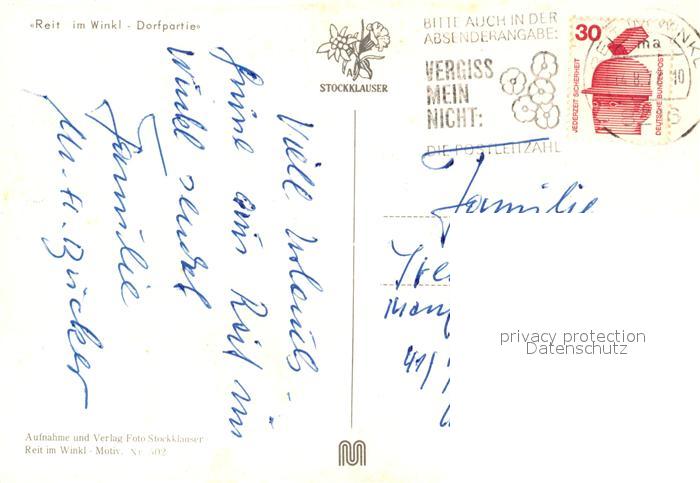 «Reit im Winkl - Dorfpartie»
STOCKKLAUSER
BITTE AUCH IN DER
ABSENDERANGABE:
VERGISS
MEIN
NICHT:
DIE POSTLEITZAHL
30
JEDERZEIT SICHERHEIT
DEUTSCHE BUNDESPOST
Viele Urlaubs-
grüße aus Reit im
Winkl sendet
Familie
Familie
41/
privacy protection
Datenschutz
Aufnahme und Verlag Foto Stockklauser
Reit im Winkl - Motiv. Nr. 502